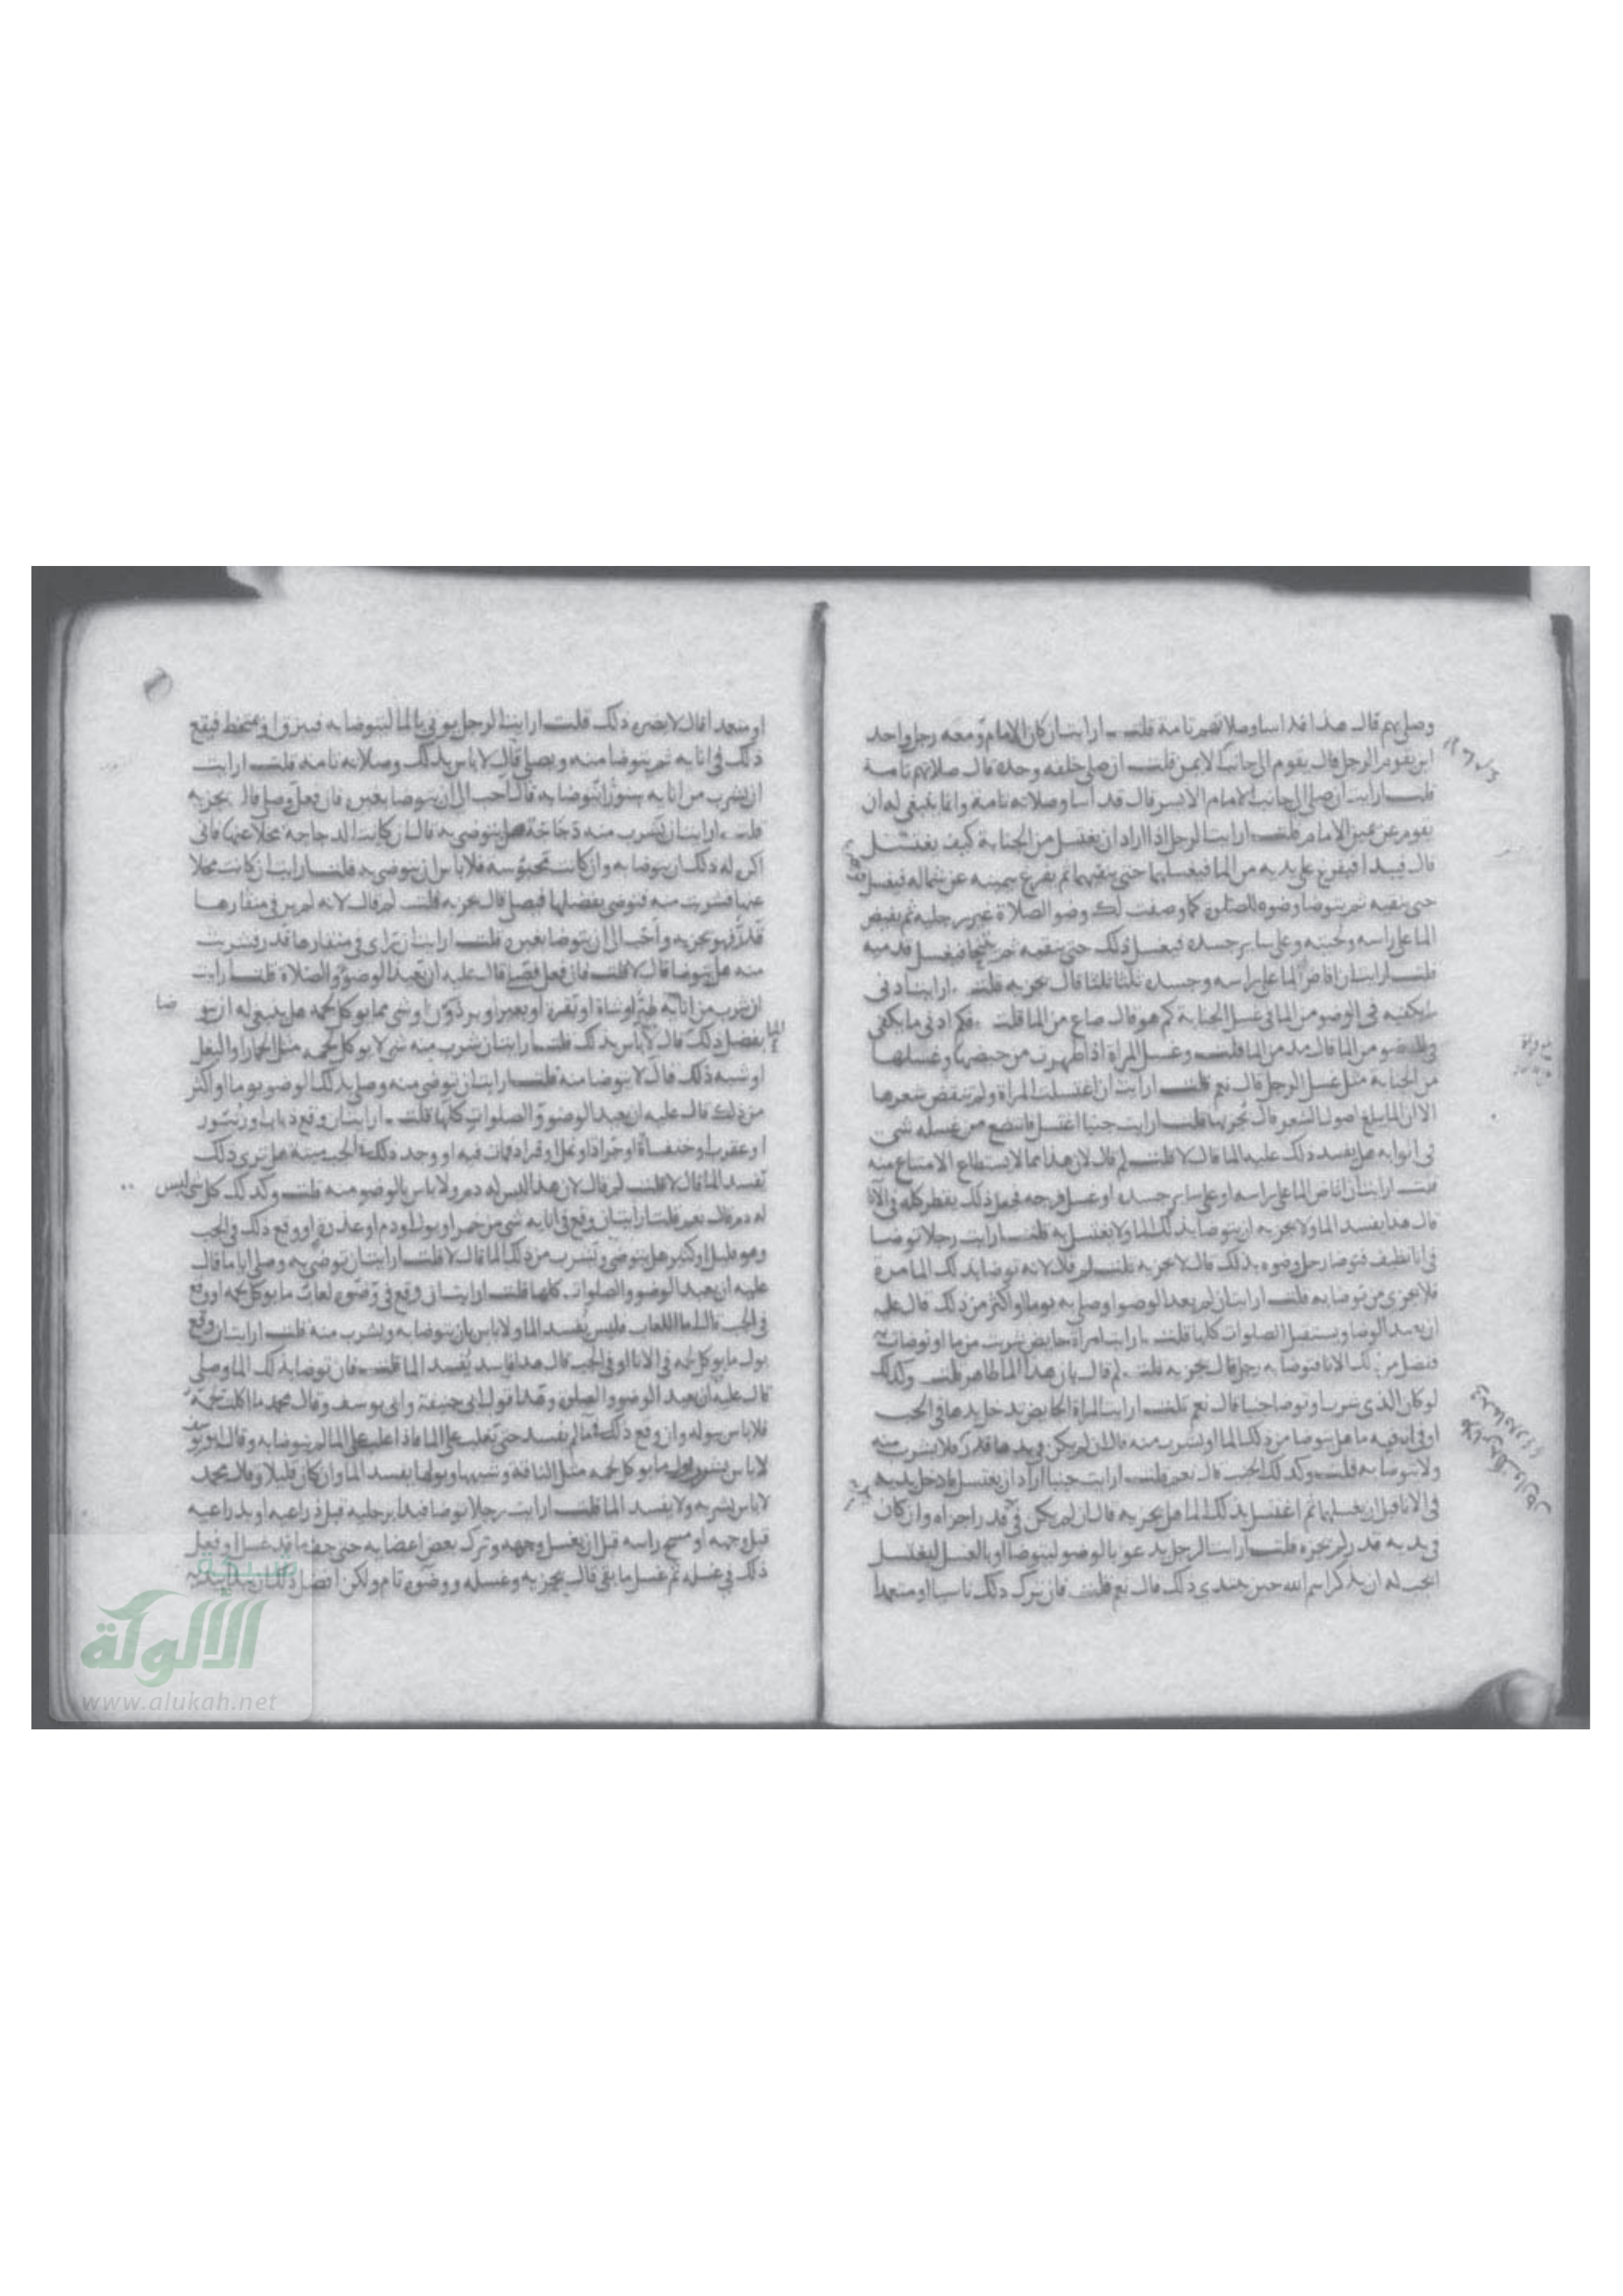 وصلى بهم قال هذا قد اسا وصلاتهم تامة قلت ارايت ان كان الامام ومعه رجل واحد
اين يقوم الرجل قال يقوم الى جانبه الايمن قلت ان صلى خلفه وحده قال صلاتهم تامة
قلت ارايت ان صلى الى جانب الامام الايسر قال قد اسا وصلاته تامة وانما ينبغي له ان
يقوم عن يمين الامام قلت ارايت الرجل اذا اراد ان يغتسل من الجنابة كيف يغتسل
قال يبدا فيفرغ على يديه من الما فيغسلهما حتى ينقيهما ثم يفرغ بيمينه على شماله فيغسل
حتى ينقيه ثم يتوضا وضوه للصلوة كما وصفت لك وضو الصلاة غير رجليه ثم يفيض
الما على راسه ولحيته وعلى ساير جسده فيغسل ذلك حتى ينقيه ثم يتنحا فيغسل قدميه
قلت ارايت ان افاض الما على راسه وجسده ثلثا ثلثا قال يجزيه قلت ارايت ادنى
ما يكفيه في الوضو من الما في غسل الجنابة كم هو قال صاع من الما قلت فكم ادنى ما يكفي
في الوضو من الما قال مد من الما قلت وغسل المراة اذا طهرت من حيضها وغسلها
من الجنابة مثل غسل الرجل قال نعم قلت ارايت ان اغتسلت المراة ولم تنقض شعرها
الا ان الما بلغ اصول الشعر قال يجزيها قلت ارايت جنبا اغتسل فانتضح من غسله شي
في انايه هل يفسد ذلك عليه الما قال لا قلت لم قال لان هذا مما لا يستطاع الامتناع منه
قلت ارايت ان افاض الما على راسه او على ساير جسده او غسل فرجه فجعل ذلك يقطر كله في الانا
قال هذا يفسد الما ولا يجزيه ان يتوضا بذلك الما ولا يغتسل به قلت ارايت رجلا توضا
في انا نظيف فتوضا رجل وضوه بذلك قال لا يجزيه قلت لم قال لانه توضا بذلك الما مرة
فلا يجزي من توضا به قلت ارايت ان لم يعد الوضو وصلى به يوما او اكثر من ذلك قال عليه
ان يعيد الوضو ويستقبل الصلوات كلها قلت ارايت امراة حايض شربت من ما او توضات
ففضل من ذلك الانا فتوضا به رجل قال يجزيه قلت لم قال لان هذا الما طاهر قلت وكذلك
لو كان الذي شرب او توضا جنبا قال نعم قلت ارايت المراة الحايض يدخل يدها في الحب
او في انا فيه ما هل يتوضا من ذلك الما او يشرب منه قال ان لم يكن في يدها قذر فلا يشرب منه
ولا يتوضا به قلت وكذلك الجنب قال نعم قلت ارايت جنبا اراد ان يغتسل فادخل يديه
في الانا قبل ان يغسلهما ثم اغتسل بذلك الما هل يجزيه قال ان لم يكن في قذر اجزاه وان كان
في يديه قذر لم يجزه قلت ارايت الرجل يدعو بالوضو ليتوضا او بالغسل ليغتسل
ايجب له ان يذكر اسم الله حين يبتدي ذلك قال نعم قلت فان ترك ذلك ناسيا او متعمدا
او متعمدا قال لا يضره ذلك قلت ارايت الرجل يوتي بالما ليتوضا به فيبزق او يمتخط فيقع
ذلك في انايه ثم يتوضا منه ويصلي قال لا باس بذلك وصلاته تامة قلت ارايت
ان شرب من انايه سنور ايتوضا به قال احب الي ان يتوضا بغيره فان فعل وصلى قال يجزيه
قلت ارايت ان شرب منه دجاجة هل يتوضى به قال ان كانت الدجاجة مخلا عنها فاني
اكره له ذلك ان يتوضا به وان كانت محبوسة فلا باس ان يتوضى به قلت ارايت ان كانت مخلا
عنها فشربت منه فتوضى بفضلها فيصلي قال يجزيه قلت لم قال لانه لم ير في منقارها
قذر فهو يجزيه واحب الي ان يتوضا بغيره قلت ارايت ان راى في منقارها قذر فشربت
منه هل يتوضا قال لا قلت فان فعل فصلى قال عليه ان يعيد الوضو والصلاة قلت ارايت
ان شرب من انايه طير او شاة او بقرة او بعير او برذون او شي مما يوكل لحمه هل ينبغي له ان يتو
ضا
بفضل ذلك قال لا باس بذلك قلت ارايت ان شرب منه شي لا يوكل لحمه مثل الحمار او البغل
او شبه ذلك قال لا يتوضا منه قلت ارايت ان توضى منه وصلى بذلك الوضو يوما او اكثر
من ذلك قال عليه ان يعيد الوضو والصلوات كلها قلت ارايت ان وقع ذباب او زنبور
او عقرب او خنفساة او جراد او نمل او قراد فمات فيه او وجد ذلك في الحب ميتة هل ترى ذلك
يفسد الما قال لا قلت لم قال لان هذا ليس له دم ولا باس بالوضو منه قلت وكذلك كل شي ليس
له دم قال نعم قلت ارايت ان وقع في انايه شي من خمر او بول او دم او عذرة او وقع ذلك في الحب
وهو قليل او كثير هل يتوضى ويشرب من ذلك الما قال لا قلت ارايت ان توضى به وصلى اياما قال
عليه ان يعيد الوضو والصلوات كلها قلت ارايت ان وقع في وضوه لعاب ما يوكل لحمه او وقع
في الحب قال اما اللعاب فليس يفسد الما ولا باس بان يتوضا به ويشرب منه قلت ارايت ان وقع
بول ما يوكل لحمه في الانا او في الحب قال هذا فاسد يفسد الما قلت فان توضا بذلك الما وصلى
قال عليه ان يعيد الوضو والصلوة وهذا قول ابي حنيفة وابي يوسف وقال محمد ما اكلت لحمه
فلا باس ببوله وان وقع ذلك في ما لم يفسد حتى يغلب على الما فاذا غلب على الما لم يتوضا به وقال ابو يوسف
لا باس بشرب بول ما يوكل لحمه مثل الناقة وشبهها وبولها يفسد الما وان كان قليلا وقال محمد
لا باس بشربه ولا يفسد الما قلت ارايت رجلا توضا فبدا برجليه قبل ذراعيه او بذراعيه
قبل وجهه او مسح راسه قبل ان يغسل وجهه وترك بعض اعضايه حتى جف ما قد غسل او فعل
ذلك في غسله ثم غسل ما بقي قال يجزيه وغسله ووضوه تام ولكن افضل ذلك ان يبدا بيديه
شبكة
الألوكة
www.alukah.net